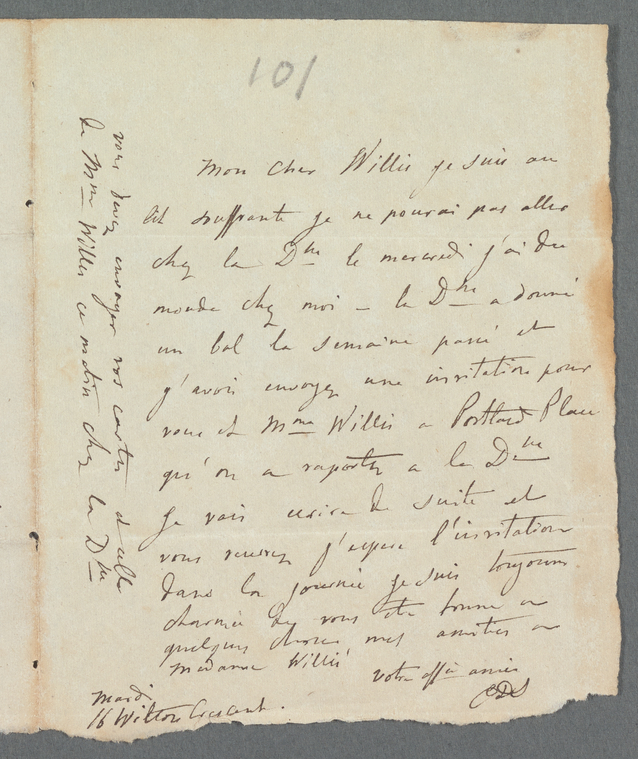 101
Mon cher Willis je suis au
lit souffrante je ne pourai pas aller
chez la Dsse le mercredi j'ai du
monde chez moi – la Dsse a donné
un bal la semaine passé et
j'avois envoyez une invitation pour
vous et Mme Willis a Portland Place
qu'on a raportez a la Dsse
je vais ecrire de suite et
vous recevrez j'espere l'invitation
dans la journée je suis toujours
charmée de vous etre bonne a
quelques choses mes amitiés a
madame Willis
votre affée amie
mardi
16 Wilton Crescent.
vous devez envoyer vos cartes et celle
de Mme Willis ce matin chez la Dsse